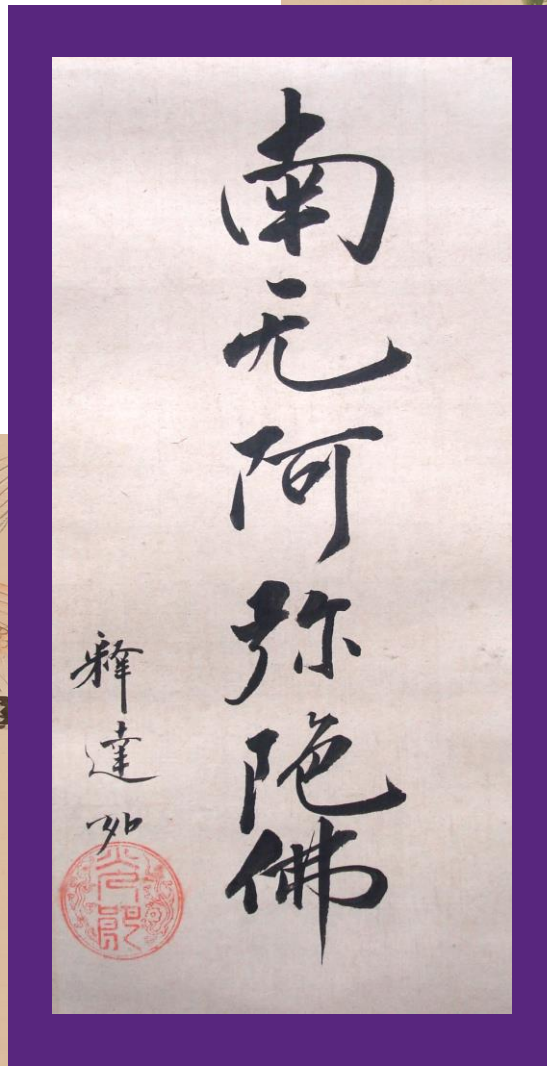 南无阿弥陀佛
釋達如
光朗